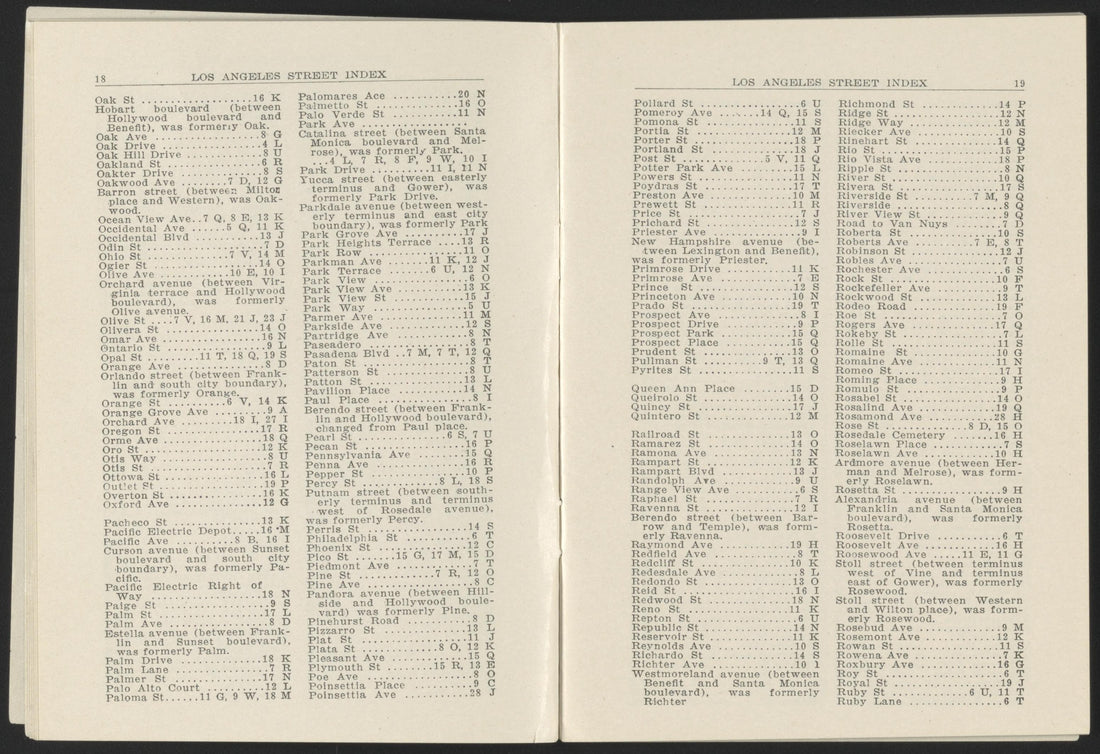 18 LOS ANGELES STREET INDEX
Oak St ...................16 K
Hobart boulevard (between
Hollywood boulevard and
Benefit), was formerly Oak.
Oak Ave ...................8 G
Oak Drive .................4 L
Oak Hill Drive .............8 U
Oakland St .................6 R
Oakter Drive ...............8 S
Oakwood Ave ........7 D, 12 G
Barron street (between Milton
place and Western), was Oak-
wood.
Ocean View Ave..7 Q, 8 E, 13 K
Occidental Ave ......5 Q, 11 K
Occidental Blvd ...........13 J
Odin St ....................7 D
Ohio St ..............7 V, 14 M
Ogier St ..................14 O
Olive Ave ..........10 E, 10 I
Orchard avenue (between Vir-
ginia terrace and Hollywood
boulevard), was formerly
Olive avenue.
Olive St ....7 V, 16 M, 21 J, 23 J
Olivera St ................14 O
Omar Ave ..................16 N
Ontario St .................9 L
Opal St .........11 T, 18 Q, 19 S
Orange Ave .................8 D
Orlando street (between Frank-
lin and south city boundary),
was formerly Orange.
Orange St ...........6 V, 14 K
Orange Grove Ave .........9 A
Orchard Ave ........18 I, 27 I
Oregon St .................17 R
Orme Ave ..................18 Q
Oro St ....................12 K
Otis Way ...................8 U
Otis St ....................7 R
Ottowa St .................16 L
Outlet St .................19 P
Overton St ................16 K
Oxford Ave ................12 G
Pacheco St ................13 K
Pacific Electric Depot.....16 M
Pacific Ave .........8 B, 16 I
Curson avenue (between Sunset
boulevard and south city
boundary), was formerly Pa-
cific.
Pacific Electric Right of
Way ......................18 N
Paige St ...................9 S
Palm St ...................17 L
Palm Ave ...................8 D
Estella avenue (between Frank-
lin and Sunset boulevard),
was formerly Palm.
Palm Drive ................18 K
Palm Lane ..................7 R
Palmer St .................17 N
Palo Alto Court ...........12 L
Paloma St......11 G, 9 W, 18 M
Palomares Ace ...........20 N
Palmetto St ..............16 O
Palo Verde St ............11 N
Park Ave .................
Catalina street (between Santa
Monica boulevard and Mel-
rose), was formerly Park.
...4 L, 7 R, 8 F, 9 W, 10 I
Park Drive ..........11 I, 11 N
Yucca street (between easterly
terminus and Gower), was
formerly Park Drive.
Parkdale avenue (between west-
erly terminus and east city
boundary), was formerly Park
Park Grove Ave ...........17 J
Park Heights Terrace ....13 R
Park Row .................11 O
Parkman Ave .......11 K, 12 J
Park Terrace ........6 U, 12 N
Park View .................6 O
Park View Ave ............13 K
Park View St .............15 J
Park Way ..................5 U
Parmer Ave ...............11 M
Parkside Ave .............12 S
Partridge Ave .............8 N
Paseadero .................8 T
Pasadena Blvd ..7 M, 7 T, 12 Q
Paton St ..................8 T
Patterson St ..............8 U
Patton St ................13 L
Pavilion Place ...........14 N
Paul Place ................8 I
Berendo street (between Frank-
lin and Hollywood boulevard),
changed from Paul place.
Pearl St .............6 S, 7 U
Pecan St .................16 P
Pennsylvania Ave .........15 Q
Penna Ave ................16 R
Pepper St ................10 P
Percy St ............8 L, 18 S
Putnam street (between south-
erly terminus and terminus
west of Rosedale avenue),
was formerly Percy.
Perris St ................14 S
Philadelphia St ...........6 T
Phoenix St ...............12 C
Pico St .......15 G, 17 M, 15 D
Piedmont Ave ..............7 T
Pine St .............7 R, 12 O
Pine Ave ..................8 C
Pandora avenue (between Hill-
side and Hollywood boule-
vard) was formerly Pine.
Pinehurst Road ............8 D
Pizzarro St ..............13 L
Plat St ..................11 J
Plata St ............8 O, 12 K
Pleasant Ave .............15 Q
Plymouth St ........15 R, 13 E
Poe Ave ...................8 O
Poinsettia Place ..........9 C
Poinsettia Ave ...........28 J
LOS ANGELES STREET INDEX 19
Pollard St .................6 U
Pomeroy Ave ......14 Q, 15 S
Pomona St ................11 S
Portia St ................12 M
Porter St ................18 P
Portland St ..............18 J
Post St .............5 V, 11 Q
Potter Park Ave ..........15 L
Powers St ................11 N
Poydras St ...............17 T
Preston Ave ..............10 M
Prewett St ...............11 R
Price St ..................7 J
Prichard St ..............12 S
Priester Ave ..............9 I
New Hampshire avenue (be-
tween Lexington and Benefit),
was formerly Priester.
Primrose Drive ...........11 K
Primrose Ave ..............7 E
Prince St ................12 S
Princeton Ave ............10 N
Prado St .................19 T
Prospect Ave ..............8 I
Prospect Drive ............9 P
Prospect Park ............15 Q
Prospect Place ...........15 Q
Prudent St ...............13 O
Pullman St .........9 T, 13 Q
Pyrites St ...............11 S
Queen Ann Place ..........15 D
Queirolo St ..............14 O
Quincy St ................17 J
Quintero St ..............12 M
Railroad St ..............13 O
Ramarez St ...............14 O
Ramona Ave ...............13 N
Rampart St ...............12 K
Rampart Blvd .............13 J
Randolph Ave ..............9 U
Range View Ave ............6 S
Raphael St ................7 R
Ravenna St ...............12 I
Berendo street (between Bar-
row and Temple), was form-
erly Ravenna.
Raymond Ave ..............19 H
Redfield Ave ..............8 T
Redcliff St ..............10 K
Redesdale Ave .............8 L
Redondo St ...............13 O
Reid St ..................16 I
Redwood St ...............18 N
Reno St ..................11 K
Repton St .................6 U
Republic St ..............14 N
Reservoir St .............11 K
Reynolds Ave .............10 S
Richardo St ..............14 S
Richter Ave ..............10 1
Westmoreland avenue (between
Benefit and Santa Monica
boulevard), was formerly
Richter
Richmond St ..............14 P
Ridge St .................12 N
Ridge Way ................12 M
Riecker Ave ..............10 S
Rinehart St ..............14 Q
Rio St ...................15 P
Rio Vista Ave ............18 P
Ripple St .................8 N
River St .................10 Q
Rivera St ................17 S
Riverside St .........7 M, 9 Q
Riverside .................8 Q
River View St .............9 Q
Road to Van Nuys ..........7 D
Roberta St ...............10 S
Roberts Ave ..........7 E, 8 T
Robinson St ..............12 J
Robles Ave ................7 U
Rochester Ave .............6 S
Rock St ..................10 F
Rockefeller Ave ...........9 T
Rockwood St ..............13 L
Rodeo Road ...............19 F
Roe St ....................7 O
Rogers Ave ...............17 Q
Rokeby St .................7 L
Rolle St .................11 S
Romaine St ...............10 G
Romaine Ave ..............11 N
Romeo St .................17 I
Roming Place ..............9 H
Romulo St .................9 P
Rosabel St ...............14 O
Rosalind Ave .............19 Q
Rosamond Ave .............28 H
Rose St .............8 D, 15 O
Rosedale Cemetery ........16 H
Roselawn Place ............7 S
Roselawn Ave .............10 H
Ardmore avenue (between Her-
man and Melrose), was form-
erly Roselawn.
Rosetta St ................9 H
Alexandria avenue (between
Franklin and Santa Monica
boulevard), was formerly
Rosetta.
Roosevelt Drive ...........6 T
Roosevelt Ave ............16 H
Roosewood Ave .....11 E, 11 G
Stoll street (between terminus
west of Vine and terminus
east of Gower), was formerly
Rosewood.
Stoll street (between Western
and Wilton place), was form-
erly Rosewood.
Rosebud Ave ...............9 M
Rosemont Ave .............12 K
Rowan St .................11 S
Rowena Ave ................7 K
Roxbury Ave ..............16 G
Roy St ....................6 T
Royal St .................19 J
Ruby St .............6 U, 11 T
Ruby Lane .................6 T